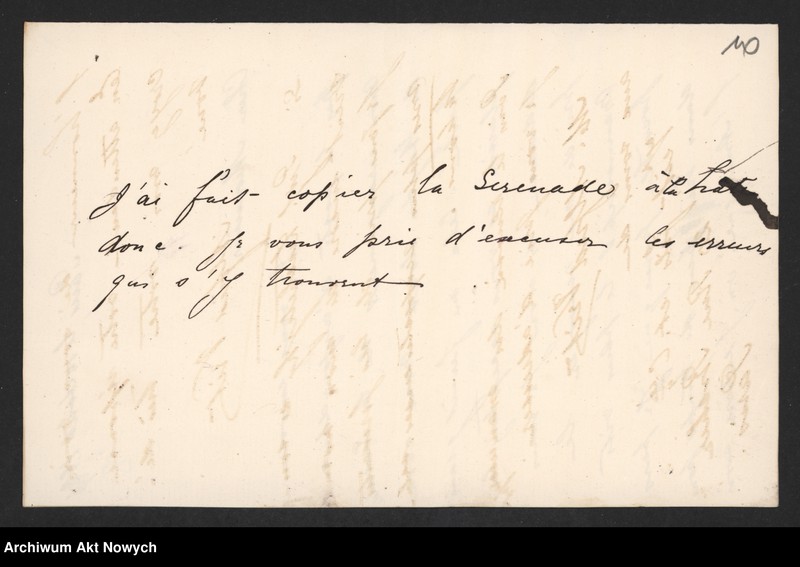 40
J'ai fait copier la Serenade à la hâte
donc. Je vous prie d'excuser les erreurs
qui s'y trouvent.
Archiwum Akt Nowych